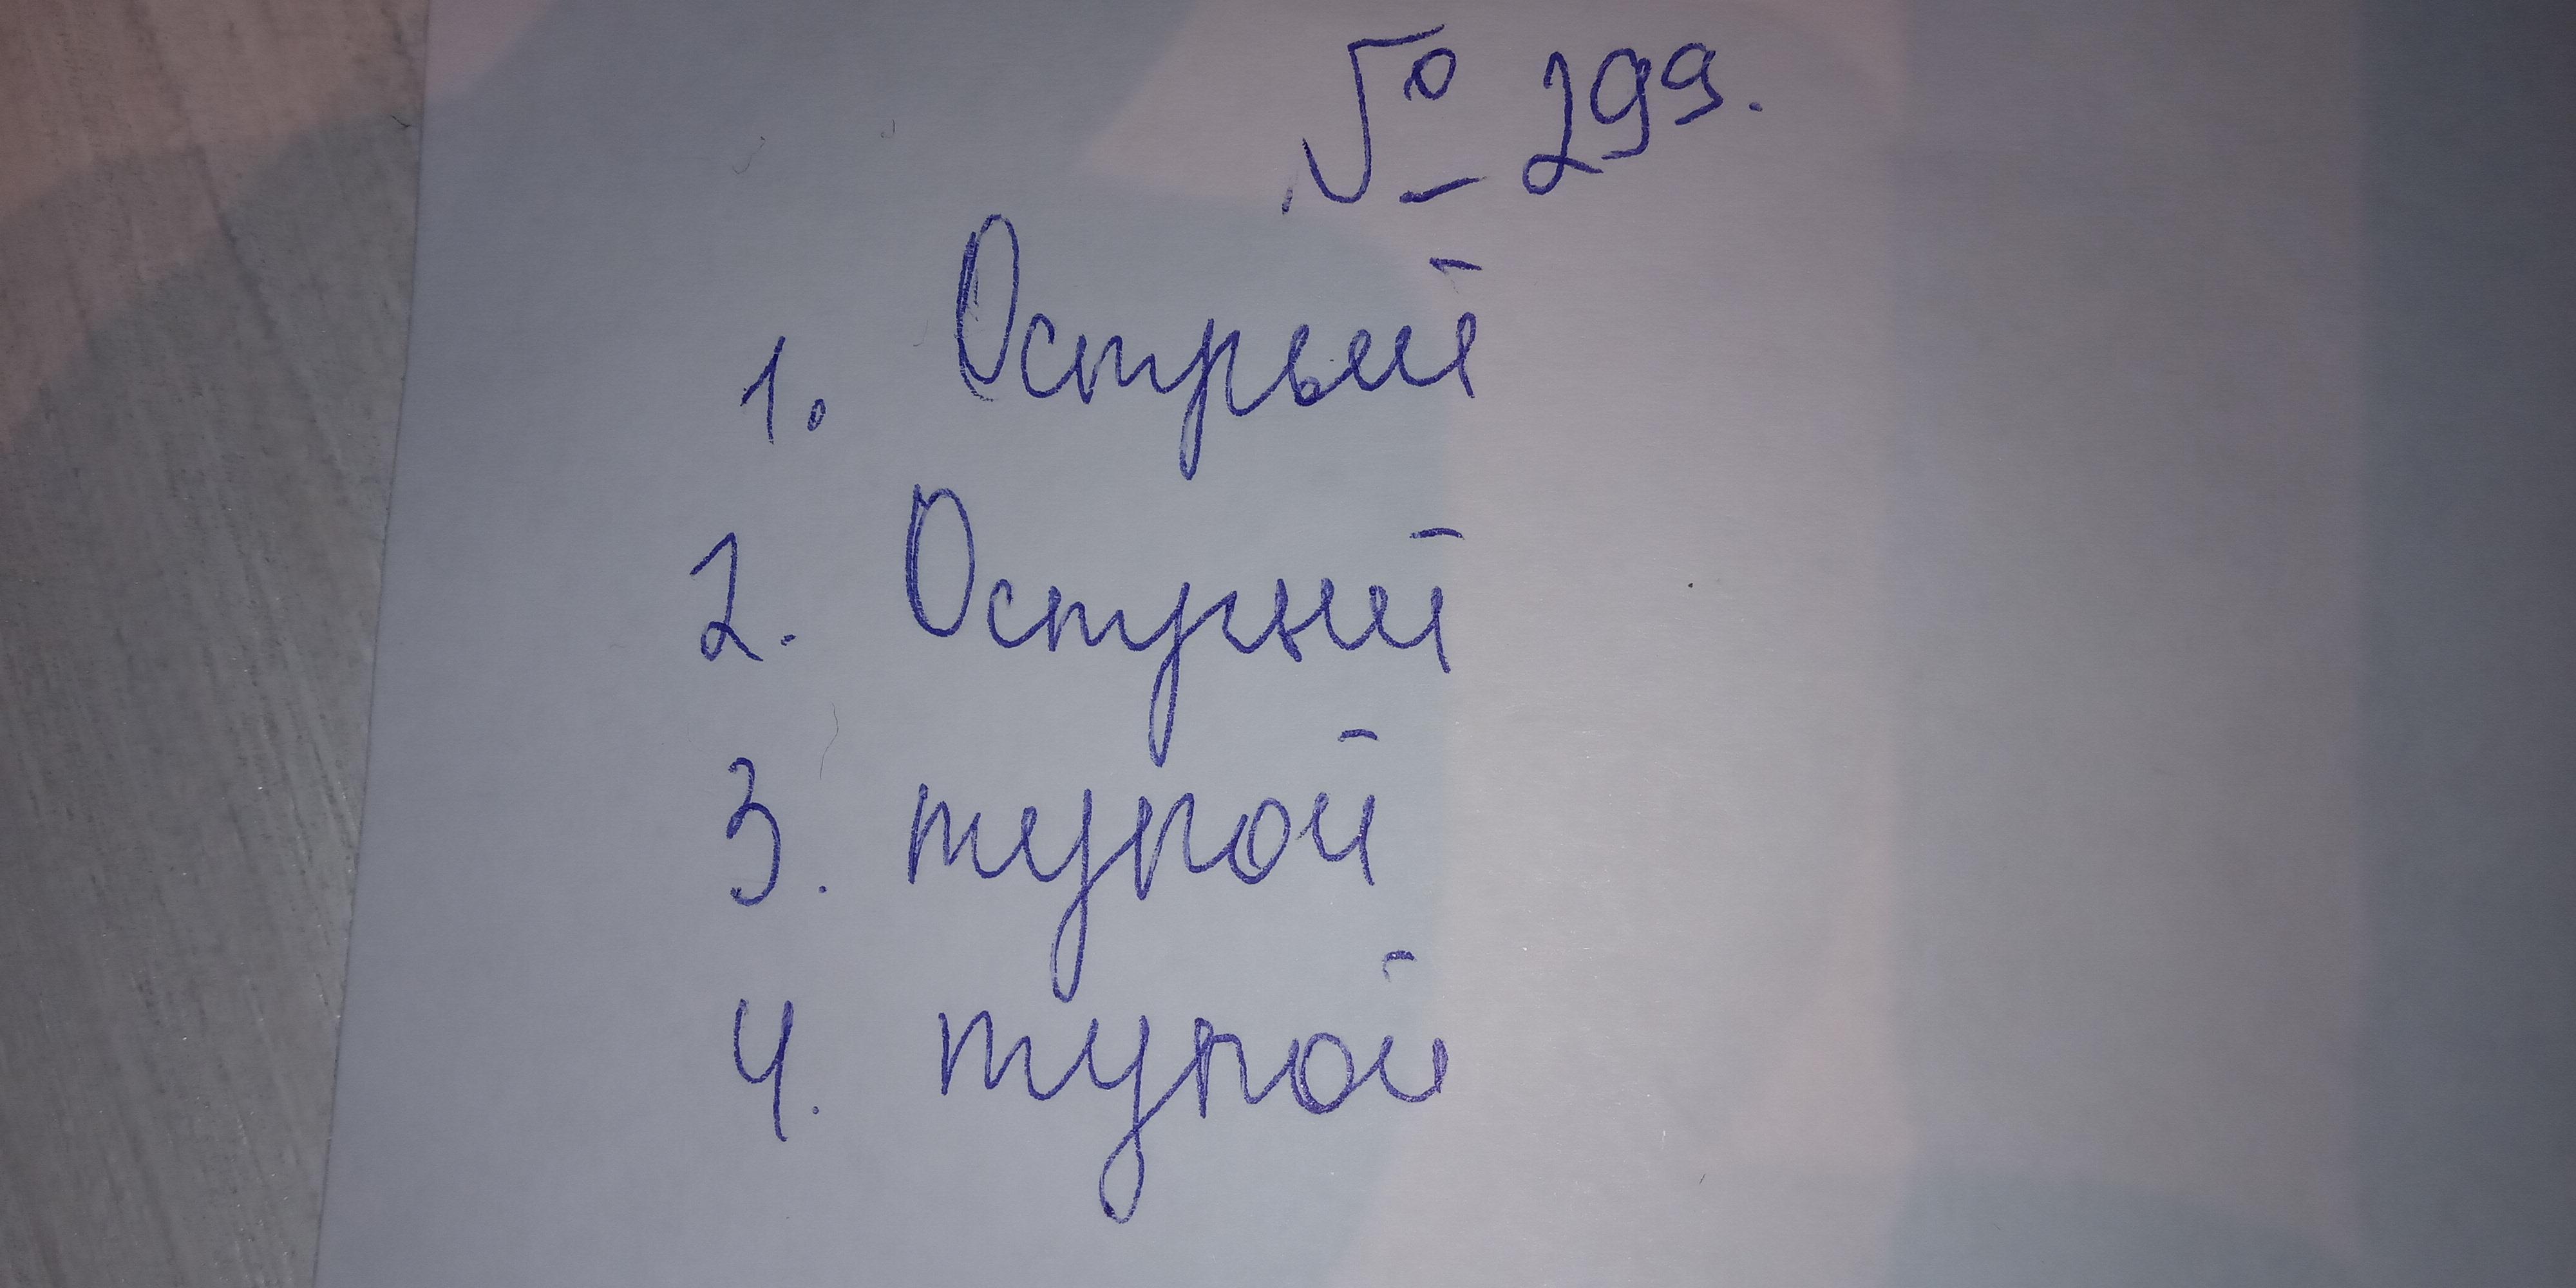 № 299.
1. Острый
2. Острый
3. тупой
4. тупой